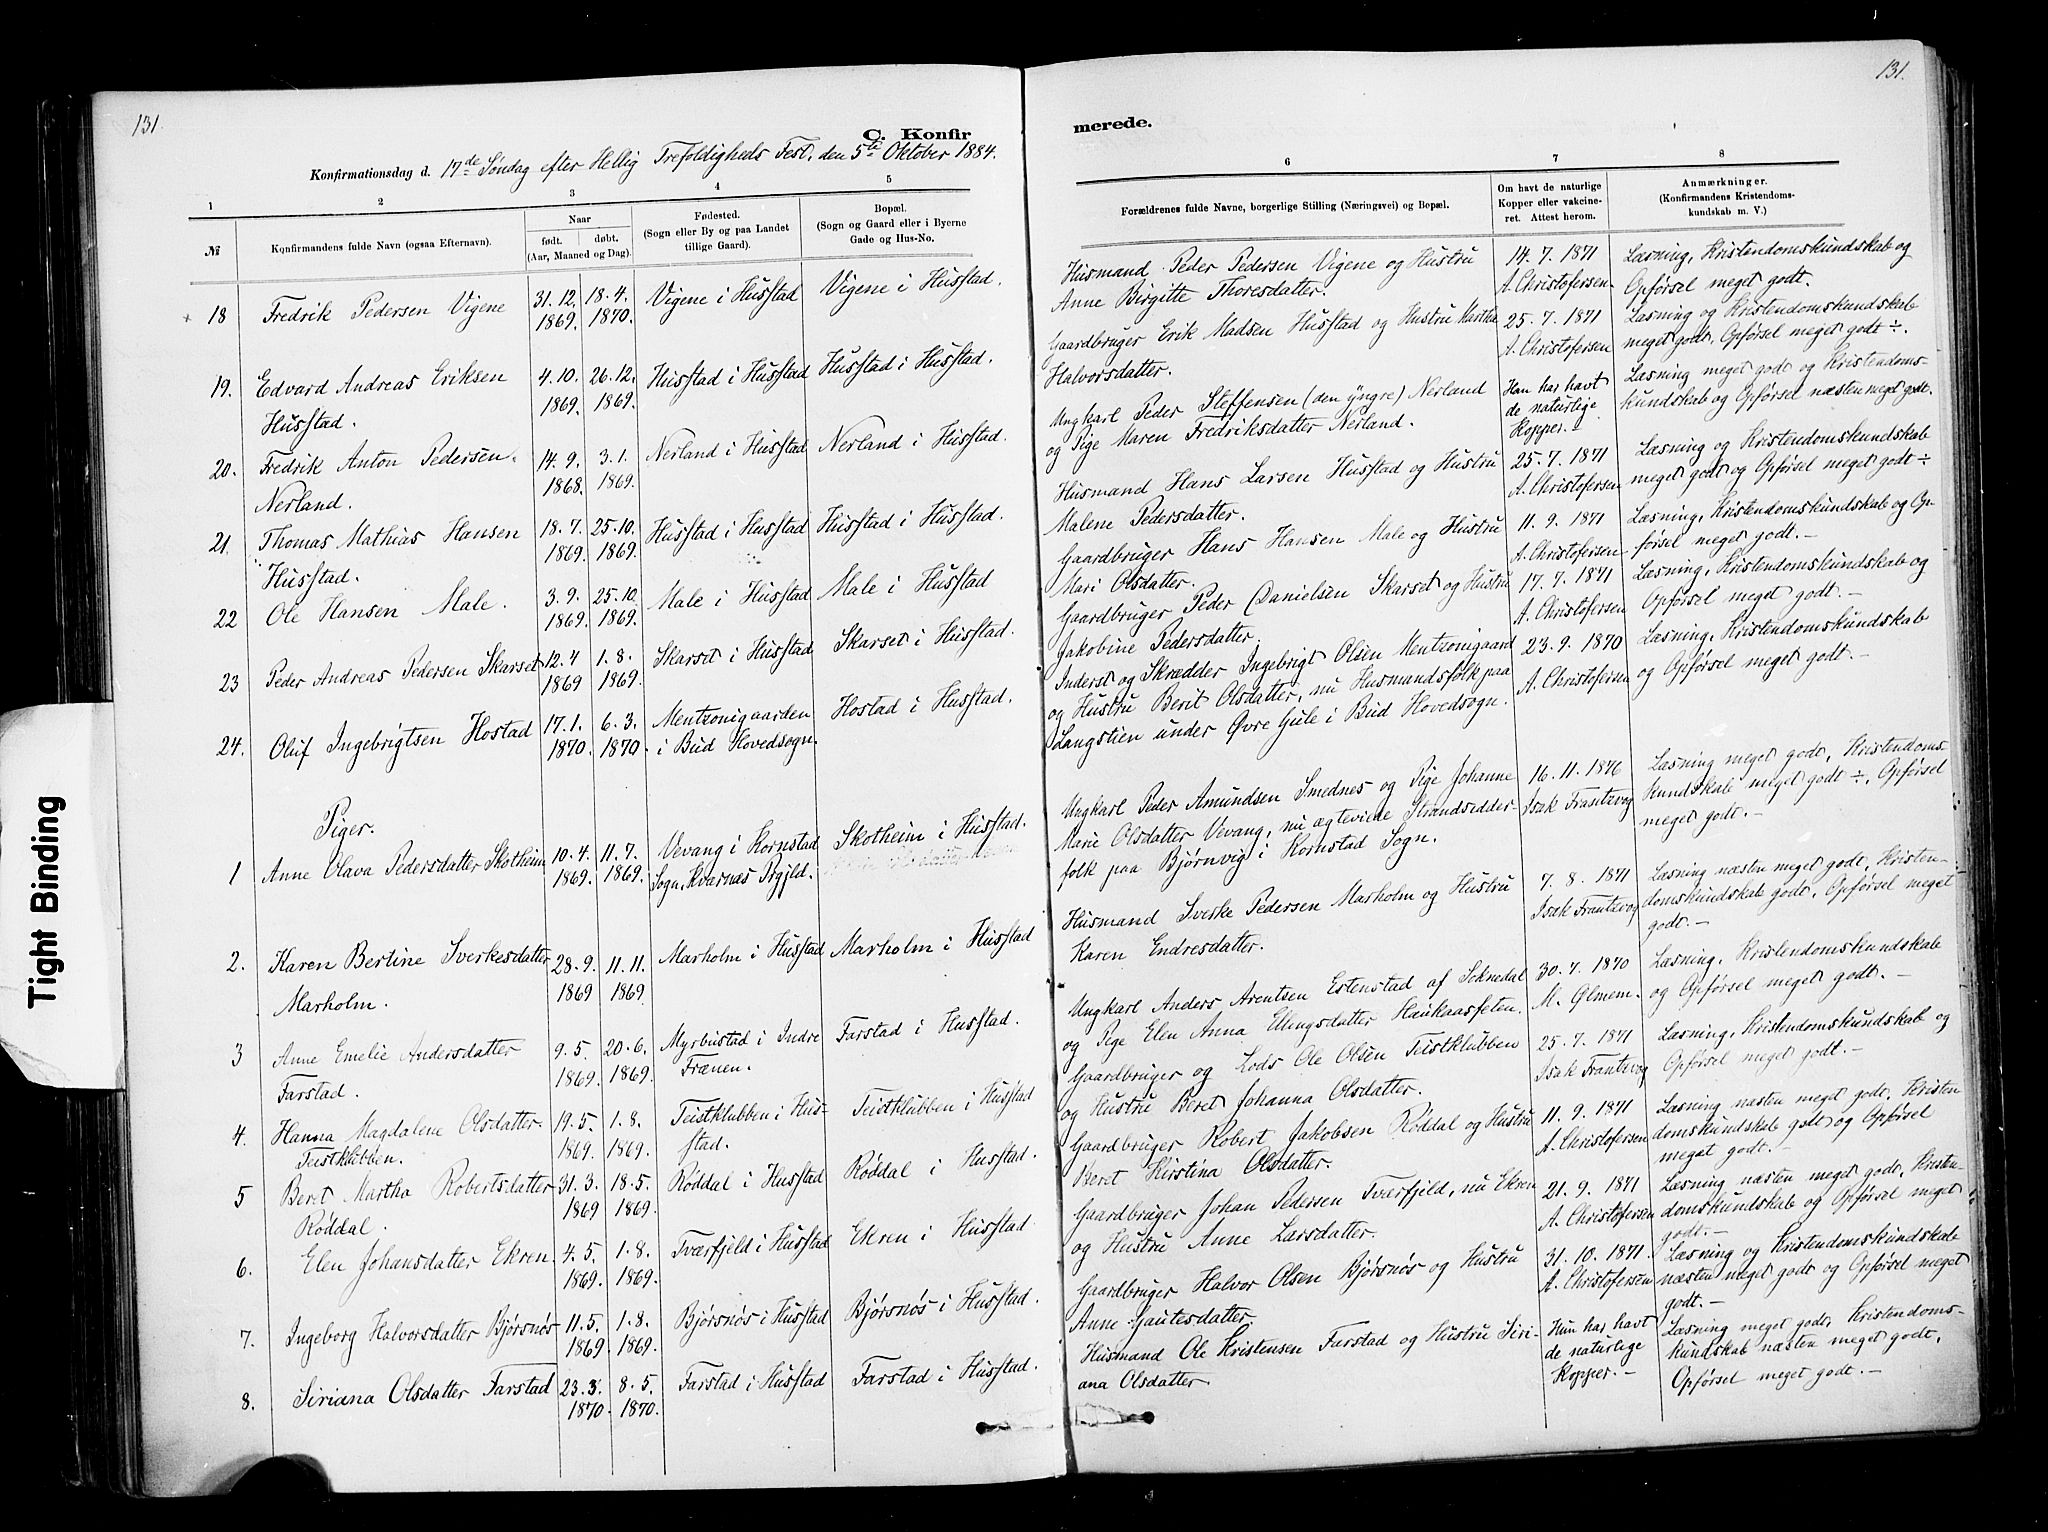 131.
C. Konfir
Konfirmationsdag d. 17de Søndag efter Hellig Trefoldigheds Fest, den 5te Oktober 1884.
1
2
3
4
5
№
Konfirmandens fulde Navn (ogsaa Efternavn).
Naar
født. døbt.
(Aar, Maaned og Dag).
Fødested.
(Sogn eller By og paa Landet
tillige Gaard).
Bopæl.
(Sogn og Gaard eller i Byerne
Gade og Hus-No.
18 Fredrik Pedersen Vigene 31.12. 18.4. Vigene i Husstad Vigene i Husstad.
1869. 1870.
19. Edvard Andreas Eriksen 4.10. 26.12. Husstad i Husstad Husstad i Husstad.
Husstad. 1869. 1869.
20. Fredrik Anton Pedersen 14.9. 3.1. Nerland i Husstad Nerland i Husstad.
Nerland. 1868. 1869.
21. Thomas Mathias Hansen 18.7. 25.10. Husstad i Husstad Husstad i Husstad.
Husstad. 1869. 1869.
22 Ole Hansen Male. 3.9. 25.10. Male i Husstad Male i Husstad
1869. 1869.
23 Peder Andreas Pedersen Skarset 12.4 1.8. Skarset i Husstad Skarset i Husstad.
1869 1869.
24. Oluf Ingebrigtsen Hostad 17.1. 6.3. Mentzonigaarden Hostad i Husstad.
1870. 1870. i Bud Hovedsogn.
Piger.
1 Anne Olava Pedersdatter Skotheim 10.4. 11.7. Vevang i Kornstad Skotheim i Husstad.
1869. 1869. Sogn, Kvarnæs Prgjld.
2. Karen Berline Sverkesdatter 28.9. 11.11. Marholm i Husstad Marholm i Husstad
Marholm. 1869 1869.
3 Anne Emelie Andersdatter 9.5. 20.6. Myrbustad i Indre Farstad i Husstad.
Farstad. 1869. 1869. Frænen.
4. Hanna Magdalene Olsdatter. 19.5. 1.8. Teistklubben i Hus- Teistklubben i Husstad
Teistklubben. 1869. 1869. stad.
5 Beret Martha Robertsdatter 31.3. 18.5. Røddal i Husstad Røddal i Husstad.
Røddal. 1869 1869.
6. Elen Johansdatter Ekren. 4.5. 1.8. Tværfjeld i Husstad Ekren i Husstad.
1869. 1869.
7. Ingeborg Halvorsdatter Bjørsnøs 11.5. 1.8. Bjørsnøs i Husstad Bjørsnøs i Husstad.
1869. 1869.
8. Siriana Olsdatter Farstad 23.3. 8.5. Farstad i Husstad Farstad i Husstad.
1870. 1870.
131.
merede.
6
7
8
Forældrenes fulde Navne, borgerlige Stilling (Næringsvei) og Bopæl.
Om havt de naturlige
Kopper eller vakcine-
ret. Attest herom.
Anmærkninger.
(Konfirmandens Kristendoms-
kundskab m. V.)
Husmand Peder Pedersen Vigene og Hustru 14.7.1871 Læsning, Kristendomskundskab og
Anne Birgitte Thoresdatter. A. Christofersen. Opførsel meget godt.
Gaardbruger Erik Madsen Husstad og Hustru Martha 25.7.1871 Læsning og Kristendomskundskab
Halvorsdatter. A. Christofersen meget godt, Opførsel meget godt ÷.
Ungkarl Peder Steffensen (den yngre) Nerland Han har havt Læsning meget godt og Kristendoms-
og Pige Maren Fredriksdatter Nerland. de naturlige kundskab og Opførsel næsten meget godt.
Kopper.-
Husmand Hans Larsen Husstad og Hustru 25.7.1871 Læsning og Kristendomskundskab
Malene Pedersdatter. A. Christofersen meget godt og Opførsel meget godt ÷
Gaardbruger Hans Hansen Male og Hustru 11.9.1871 Læsning, Kristendomskundskab og Op-
Mari Olsdatter. A. Christofersen førsel meget godt.-
Gaardbruger Peder Danielsen Skarset og Hustru 17.7.1871 Læsning, Kristendomskundskab og
Jakobine Pedersdatter. A. Christofersen Opførsel meget godt.-
Inderst og Skrædder Ingebrigt Olsen Mentzonigaard 23.9.1870 Læsning, Kristendomskundskab
og Hustru Berit Olsdatter, nu Husmandsfolk paa A. Christofersen og Opførsel meget godt.-
Langstien under Øvre Gule i Bud Hovedsogn.
Ungkarl Peder Amundsen Smednes og Pige Johanne 16.11.1876 Læsning meget godt, Kristendoms-
Marie Olsdatter Vevang, nu ægteviede Strandsidder- Isak Frantzvog kundskab meget godt ÷, Opførsel
folk paa Bjørnvig i Kornstad Sogn. meget godt.-
Husmand Sverke Pedersen Marholm og Hustru 7.8.1871 Læsning næsten meget godt, Kristen-
Karen Endresdatter. Isak Frantzvog domskundskab godt, Opførsel meget
godt.-
Ungkarl Anders Arentsen Estenstad af Soknedal 30.7.1870 Læsning, Kristendomskundskab
og Pige Elen Anna Ellingsdatter Haukaasseten. M. Gimem. og Opførsel meget godt.-
Gaardbruger og Lods Ole Olsen Teistklubben 25.7.1871 Læsning, Kristendomskundskab og
og Hustru Beret Johanna Olsdatter. Isak Frantzvog Opførsel meget godt.-
Gaardbruger Robert Jakobsen Røddal og Hustru 11.9.1871 Læsning næsten meget godt, Kristen
Beret Kirstina Olsdatter. A. Christofersen domskundskab godt og Opførsel
meget godt.-
Gaardbruger Johan Pedersen Tværfjeld, nu Ekren 21.9.1871 Læsning næsten meget godt, Kristen-
og Hustru Anne Larsdatter. A. Christofersen domskundskab og Opførsel meget
godt.-
Gaardbruger Halvor Olsen Bjørsnøs og Hustru 31.10.1871. Læsning og Kristendomskundskab
Anne Gautesdatter A. Christofersen næsten meget godt og Opførsel meget
godt.-
Husmand Ole Kristensen Farstad og Hustru Siri- Hun har havt Læsning meget godt, Kristendoms-
ana Olsdatter. de naturlige kundskab næsten meget godt,
Kopper.- Opførsel meget godt.-
Tight Binding